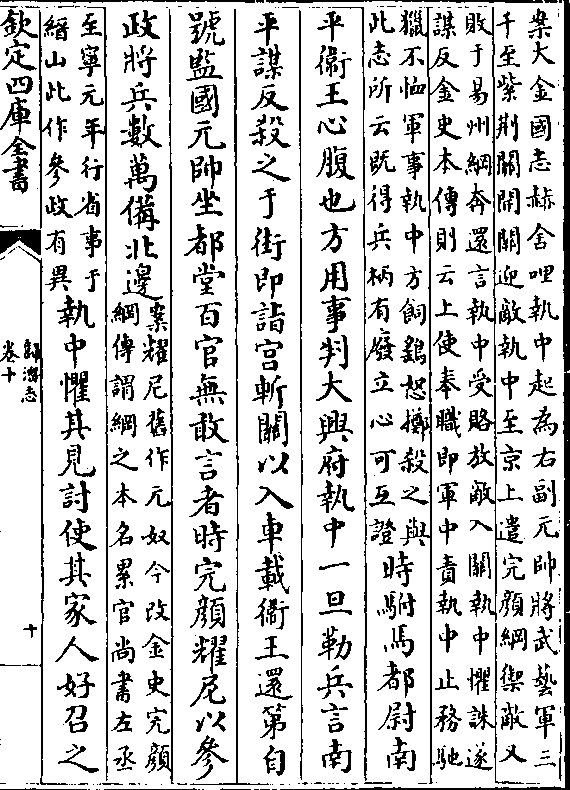 案大金國志赫舍哩執中起為右副元帥將武藝軍三
千至紫荆關開關迎敵執中至京上遣完顔綱禦敵又
敗于易州綱奔還言執中受賂放敵入關執中懼誅遂
謀反金史本傳則云上使奉職即軍中責執中止務馳
獵不恤軍事執中方飼鷂怒擲殺之與
此志所云既得兵柄有廢立心可互證
時駙馬都尉南
平衛王心腹也方用事判大興府執中一旦勒兵言南
平謀反殺之于街即詣宫斬關以入車載衛王還第自
號監國元帥坐都堂百官無敢言者時完顔耀尼以參
政將兵數萬備北邊
案耀尼舊作元奴今改金史完顔
綱傳謂綱之本名累官尚書左丞
至寧元年行省事于
縉山此作參政有異
執中懼其見討使其家人好召之
欽定四庫全書
歸潛志
卷十
十